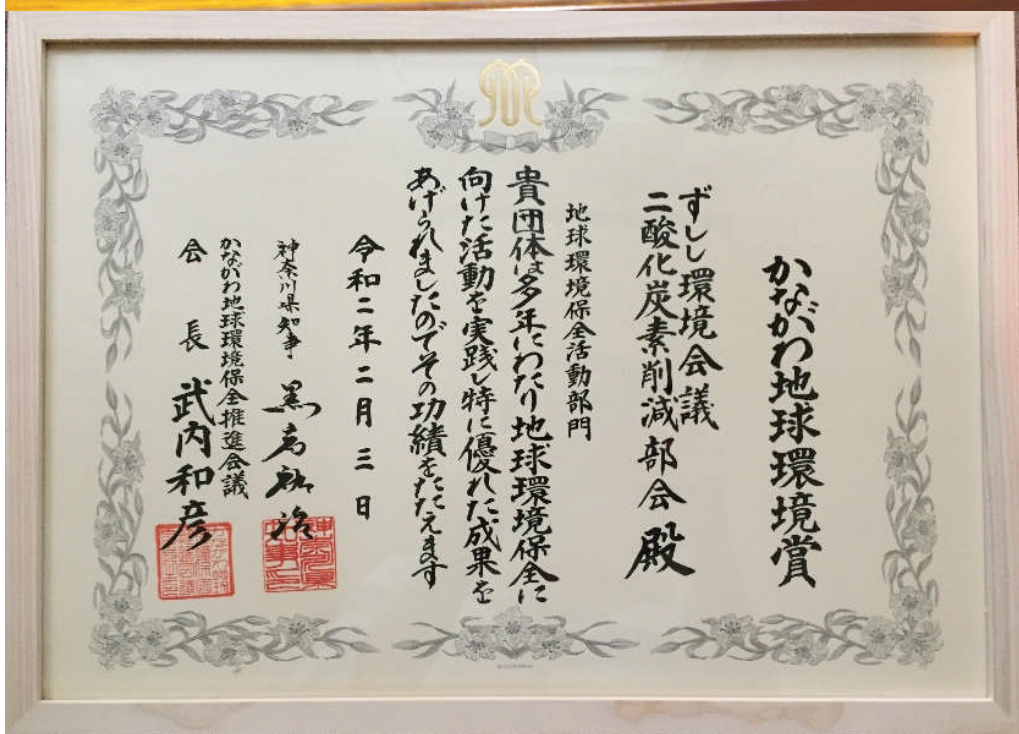 かながわ地球環境賞
ずしし環境会議
二酸化炭素削減部会 殿
地球環境保全活動部門
貴団体は多年にわたり地球環境保全に
向けた活動を実践し特に優れた成果を
あげられましたのでその功績をたたえます
令和二年二月三日
神奈川県知事 黒岩祐治
かながわ地球環境保全推進会議
会長 武内和彦